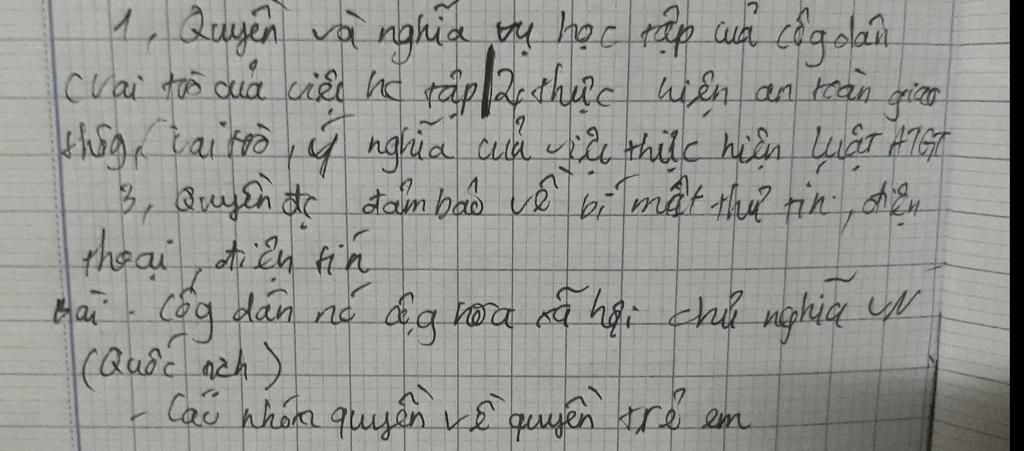 1, Quyền và nghĩa vụ học tập của côg dân
(vai trò của việc hc tập 2, thực hiện an toàn giao
thôg, vai trò, ý nghĩa của việc thực hiện luật ATGT
3, Quyền đc đảm bảo về bí mật thư tín, điện
thoại, điện tín
Bài - Côg dân nc cộg hòa xã hội chủ nghĩa VN
(Quốc tịch)
- Các nhóm quyền về quyền trẻ em